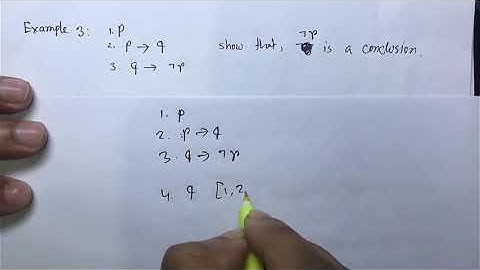 Example 3: 1. p
2. p → q show that, ¬p is a conclusion.
3. q → ¬p
1. p
2. p → q
3. q → ¬p
4. q [1,2